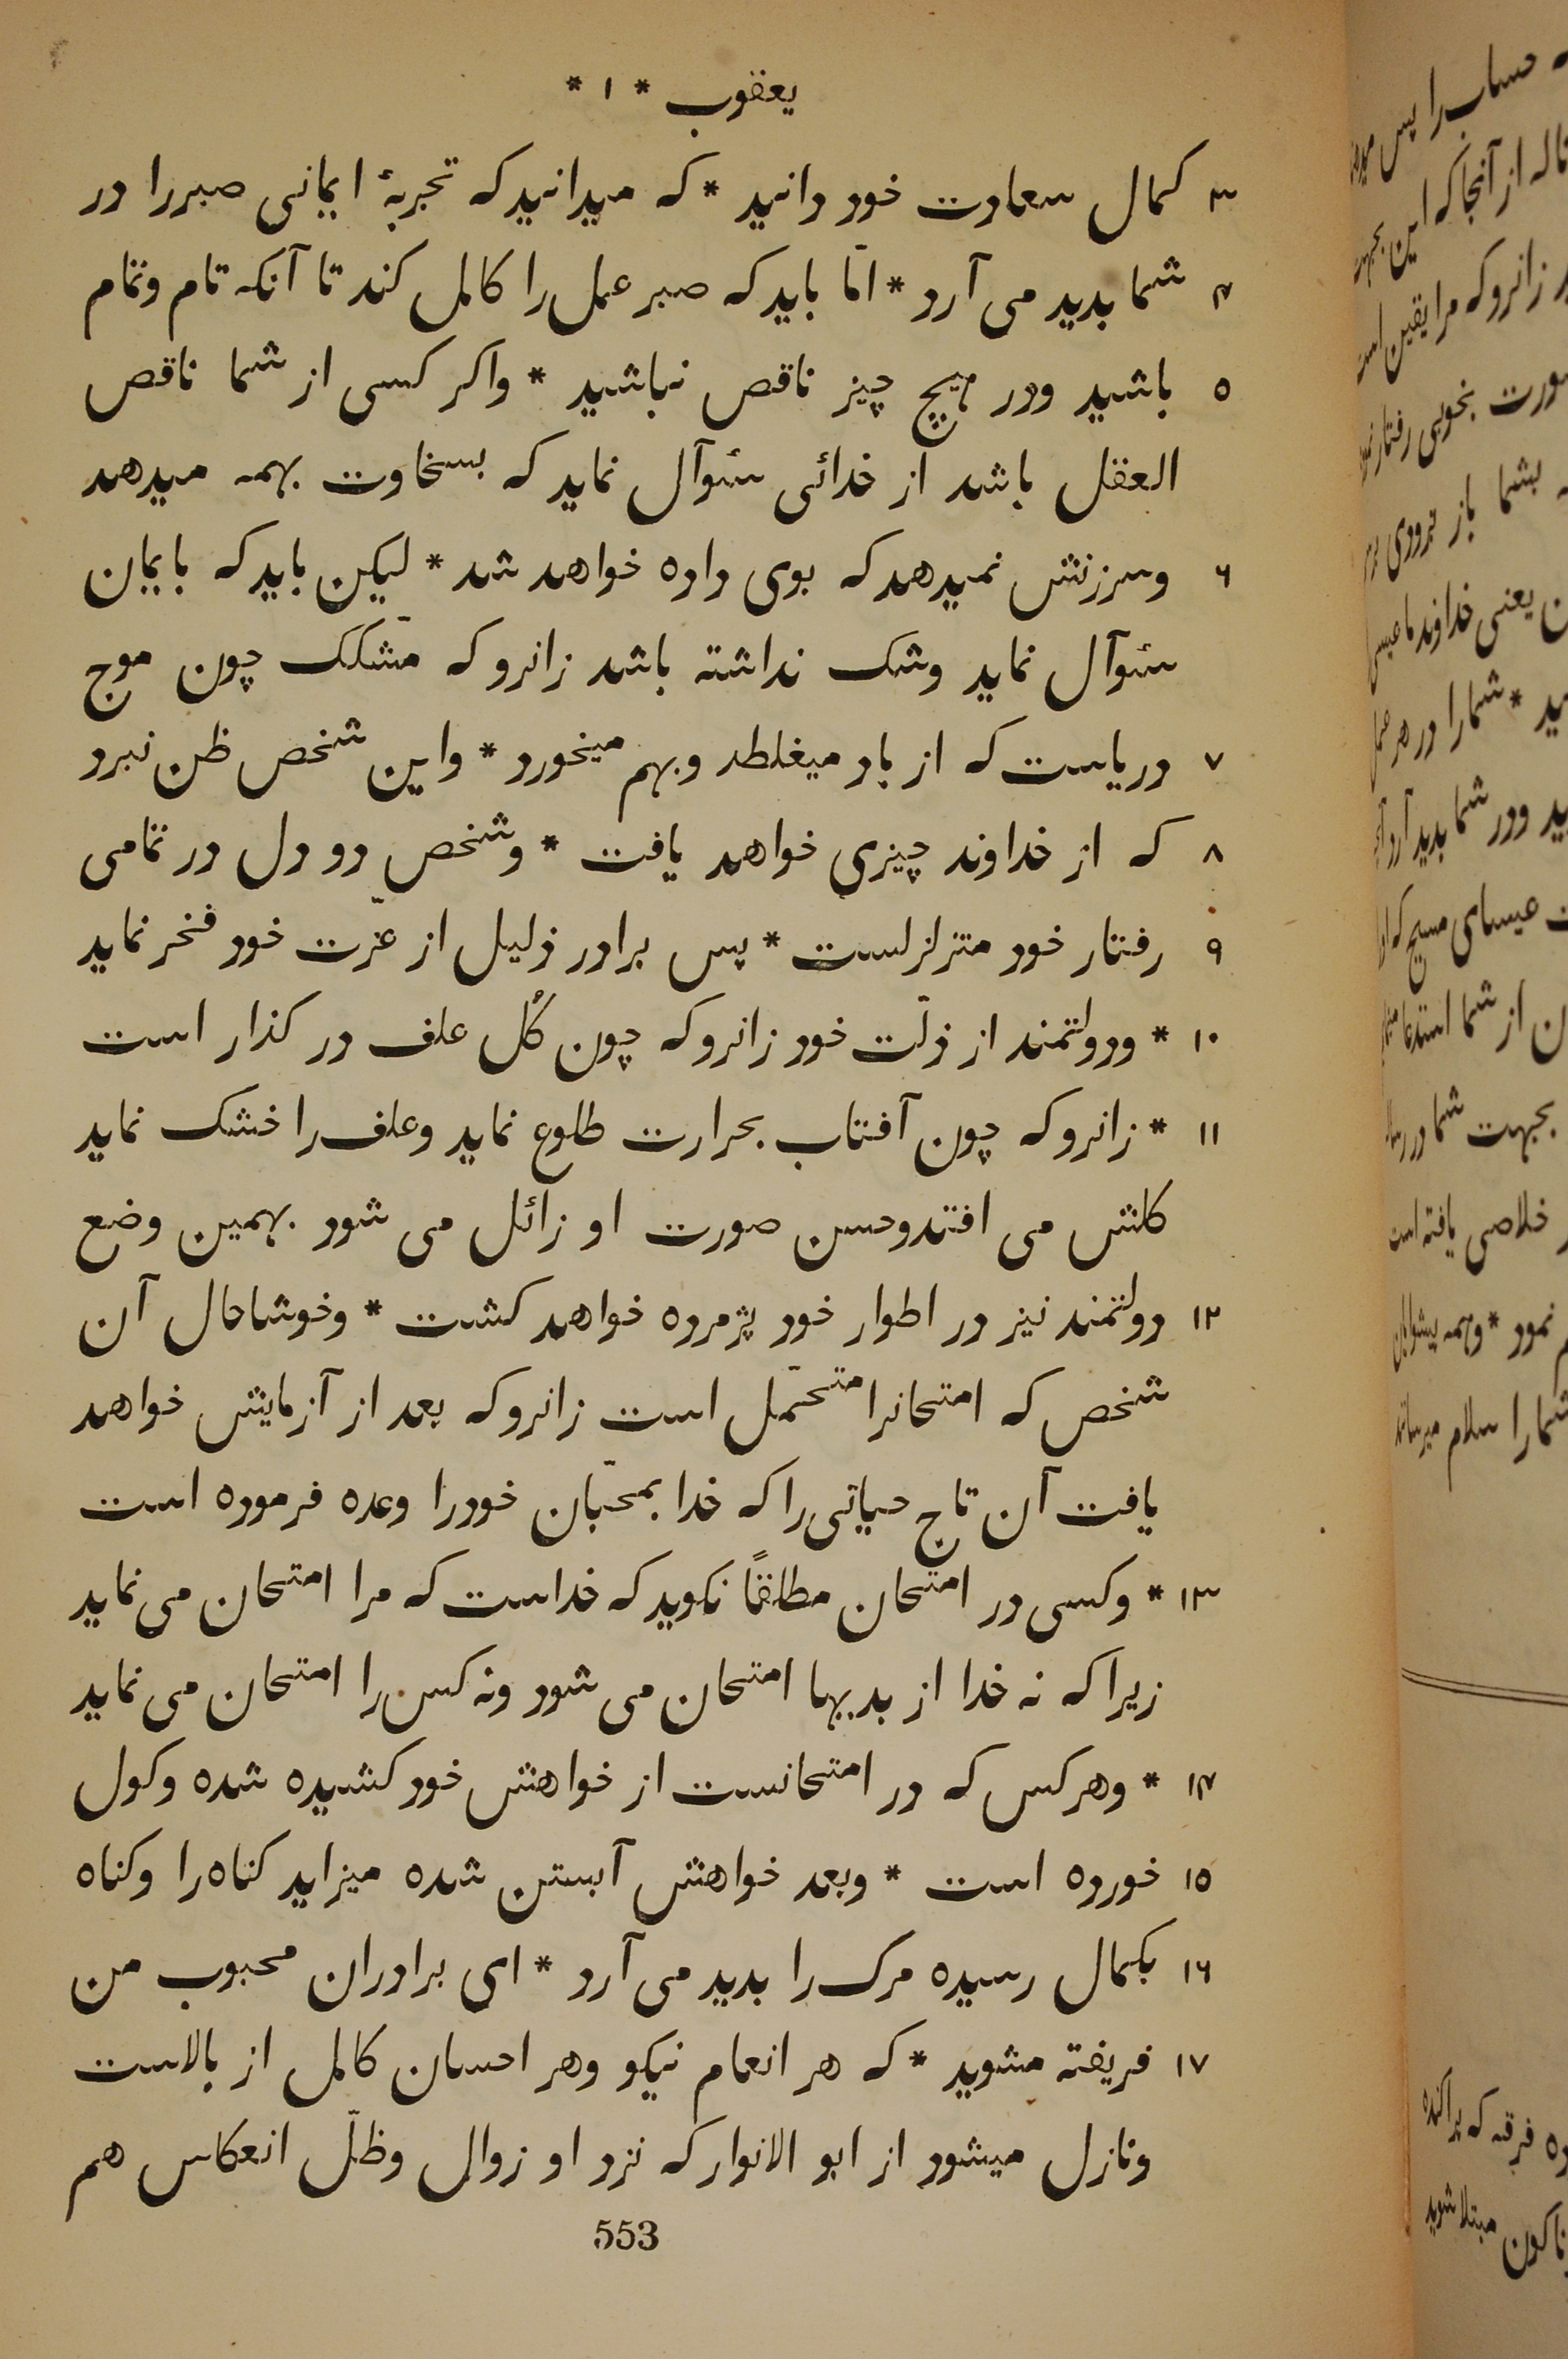 یعقوب * ۱ *
۳ کمال سعادت خود دانید * که میدانید که تجربهٔ ایمانی صبررا در
۴ شما بدید می آرد * امّا باید که صبر عمل را کامل کند تا آنکه تام وتمام
۵ باشید ودر هیچ چیز ناقص نباشید * واکر کسی از شما ناقص
العقل باشد از خدائی سئوآل نماید که بسخاوت بهمه میدهد
۶ وسرزنش نمیدهد که بوی داده خواهد شد * لیکن باید که بایمان
سئوآل نماید وشک نداشته باشد زانرو که مشکّک چون موج
۷ دریاست که از باد میغلطد وبهم میخورد * واین شخص ظن نبرد
۸ که از خداوند چیزی خواهد یافت * وشخص دو دل در تمامی
۹ رفتار خود متزلزلست * پس برادر ذلیل از عزّت خود فخر نماید
۱۰ * ودولتمند از ذلّت خود زانرو که چون کُل علف در کذار است
۱۱ * زانرو که چون آفتاب بحرارت طلوع نماید وعلف را خشک نماید
کلش می افتد وحسن صورت او زائل می شود بهمین وضع
۱۲ دولتمند نیز در اطوار خود پژمرده خواهد کشت * وخوشاحال آن
شخص که امتحانرا متحمّل است زانرو که بعد از آزمایش خواهد
یافت آن تاج حیاتی را که خدا بمحبّان خودرا وعده فرموده است
۱۳ * وکسی در امتحان مطلقاً نکوید که خداست که مرا امتحان می نماید
زیرا که نه خدا از بدیها امتحان می شود ونه کس را امتحان می نماید
۱۴ * وهر کس که در امتحانست از خواهش خود کشیده شده وکول
۱۵ خورده است * وبعد خواهش آبستن شده میزاید کناه را وکناه
۱۶ بکمال رسیده مرک را بدید می آرد * ای برادران محبوب من
۱۷ فریفته مشوید * که هر انعام نیکو وهر احسان کامل از بالاست
ونازل میشود از ابو الانوار که نزد او زوال وظلّ انعکاس هم
553